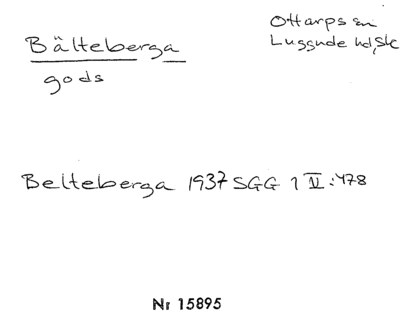 Bälteberga
gods
Ottarps sn
Luggude hd, Sk
Belteberga 1937 SGG 1 II:478
Nr 15895